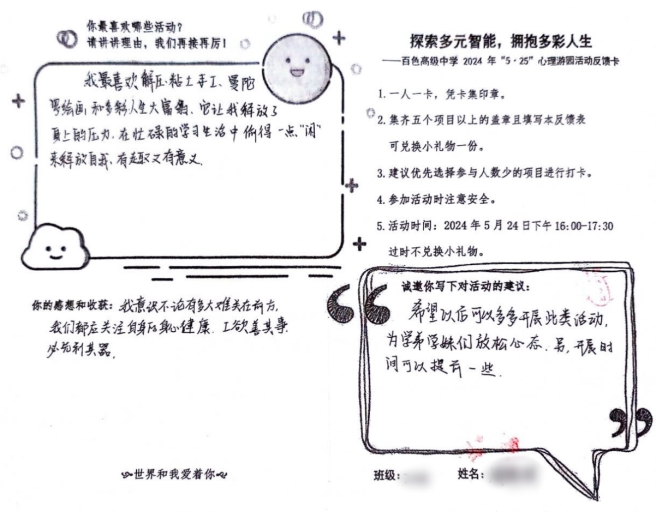 你最喜欢哪些活动？
请讲讲理由，我们再接再厉！
我最喜欢解压粘土手工、曼陀
罗绘画和多彩人生大富翁、它让我解放了
身上的压力、在忙碌的学习生活中偷得一点"闲"
来解放自我、有趣又有意义.
你的感想和收获：我意识不论有多大难关在前方，
我们都应关注自身心健康. 工欲善其事
必先利其器.
世界和我爱着你
探索多元智能，拥抱多彩人生
——百色高级中学 2024 年“5·25”心理游园活动反馈卡
1.一人一卡，凭卡集印章。
2.集齐五个项目以上的盖章且填写本反馈表
可兑换小礼物一份。
3.建议优先选择参与人数少的项目进行打卡。
4.参加活动时注意安全。
5.活动时间：2024 年 5 月 24 日下午 16:00-17:30
过时不兑换小礼物。
诚邀你写下对活动的建议：
希望以后可以多多开展此类活动，
为学弟学妹们放松心态. 另，开展时
间可以提前一些.
班级： 姓名：